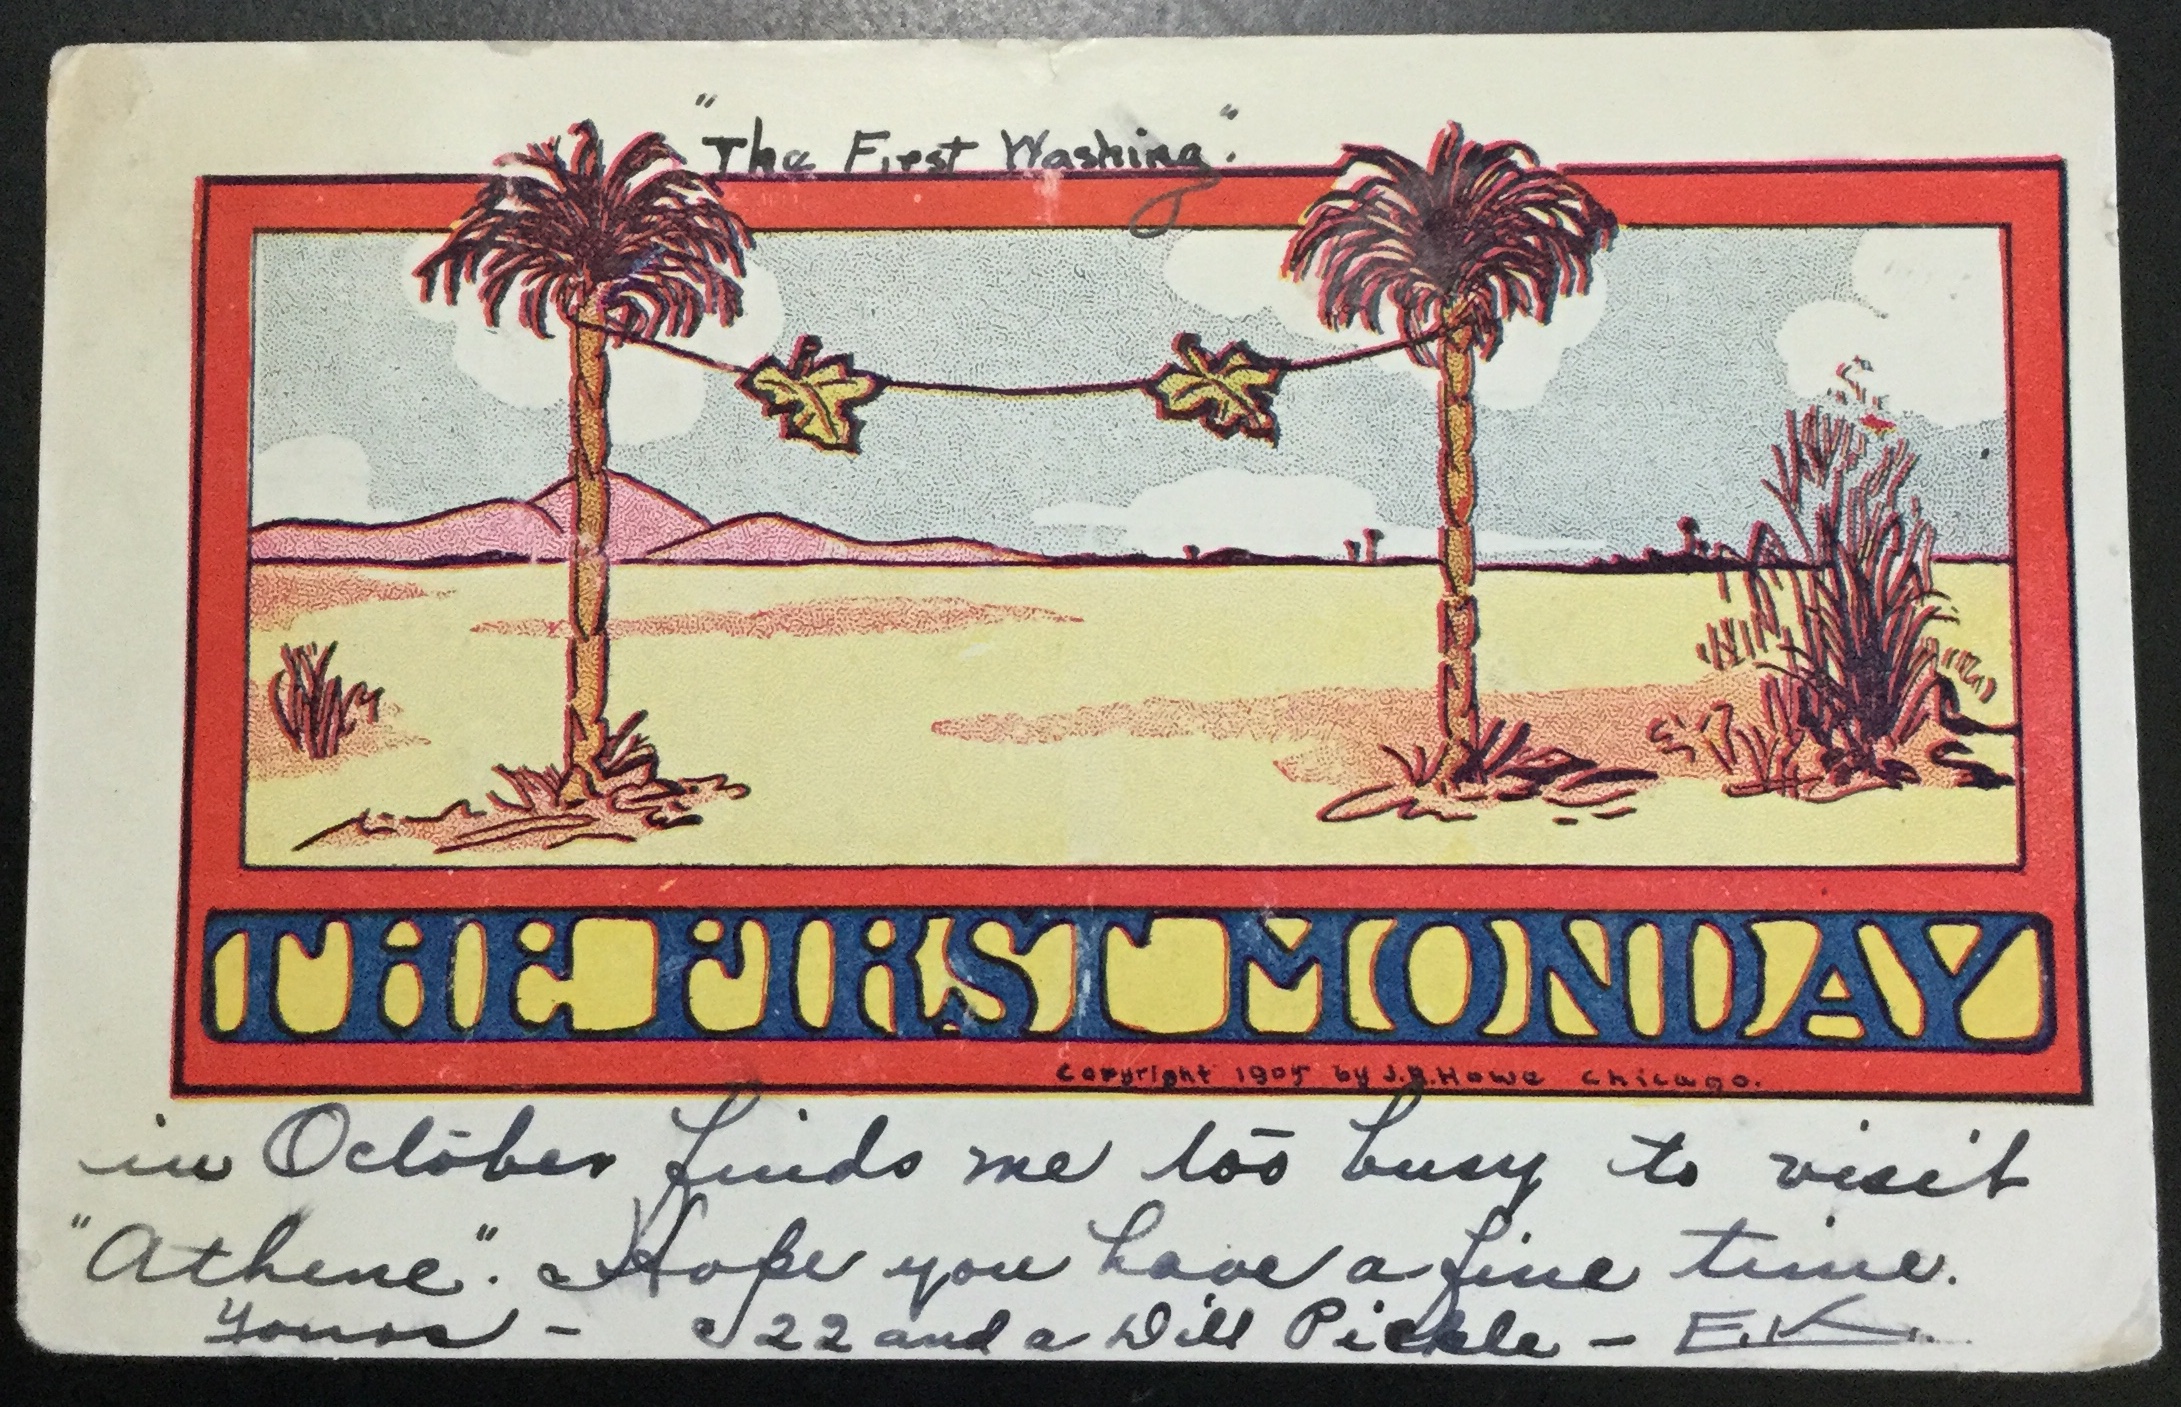 "The First Washing."
THE FIRST MONDAY
Copyright 1905 by J.R.Howe Chicago.
in October finds me too busy to visit
"Athene". Hope you have a fine time.
Yours - 22 and a Dill Pickle - E.K.